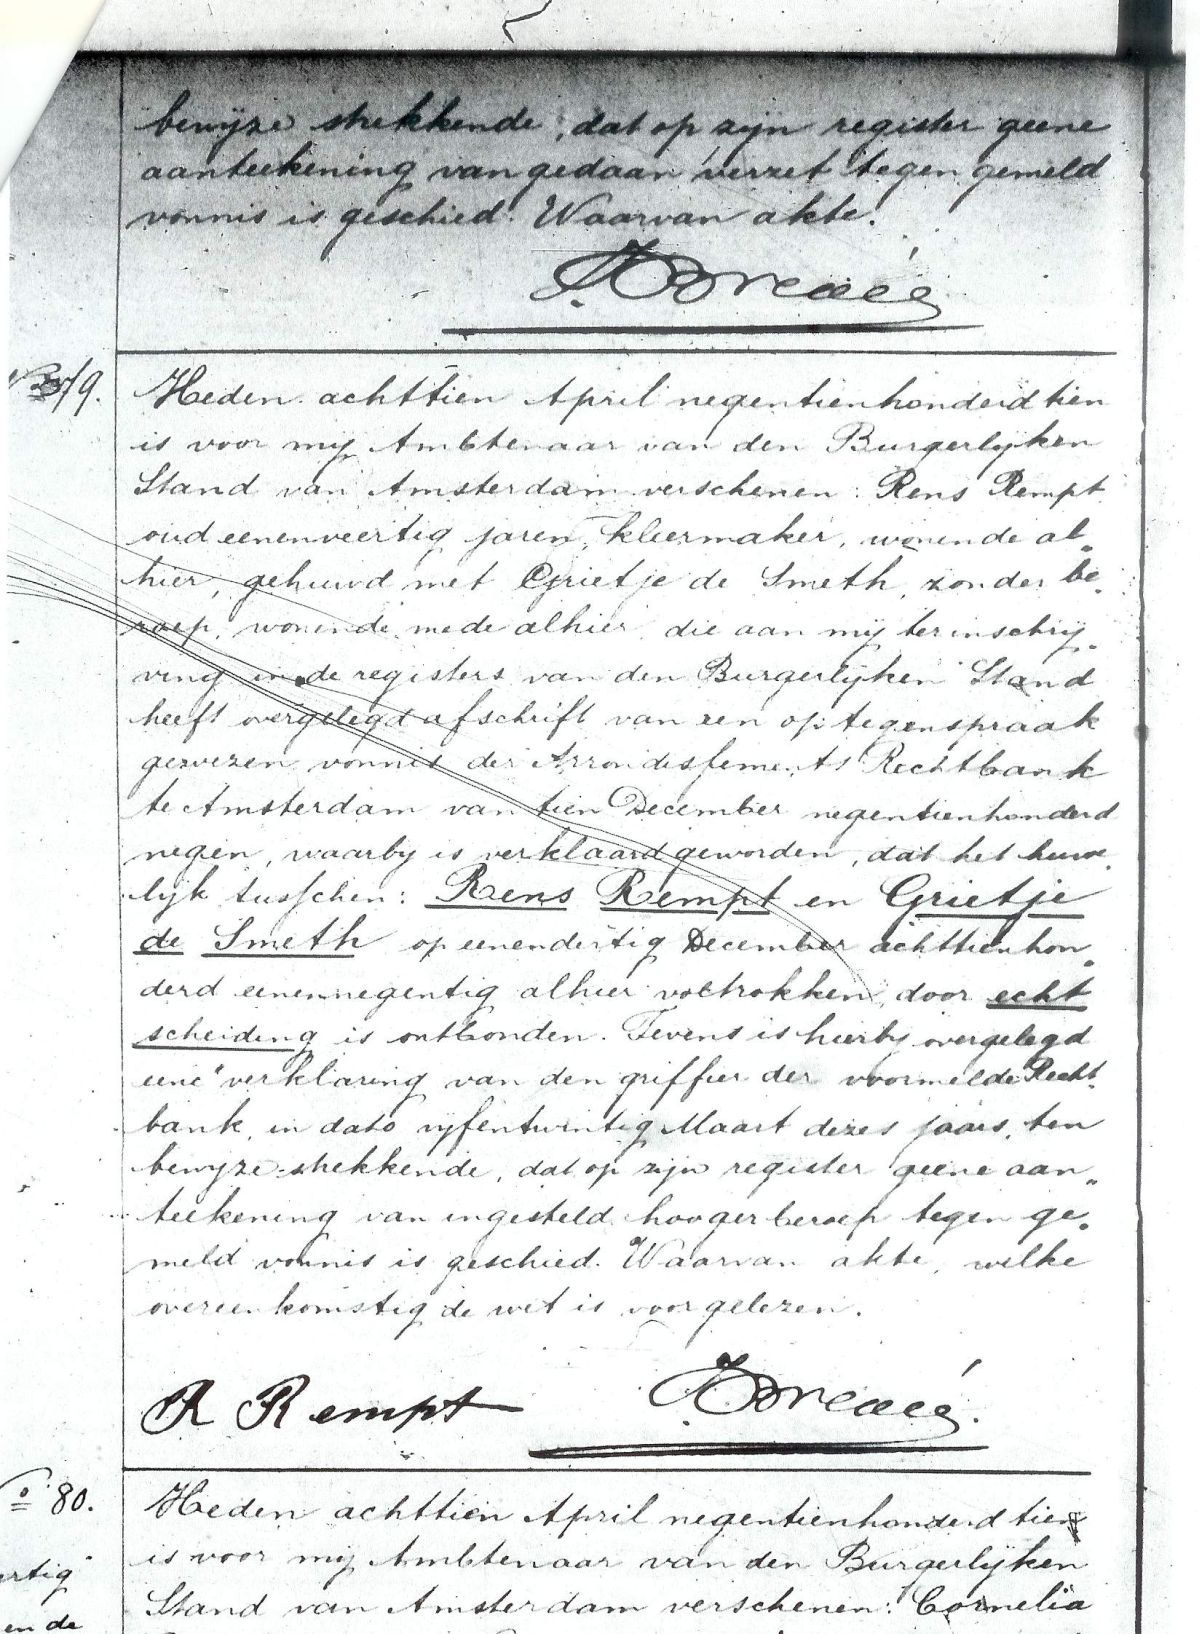 bewijze strekkende, dat op zijn register geene
aanteekening van gedaan verzet tegen gemeld
vonnis is geschied. Waarvan akte.
No 79.
Heden achttien April negentienhonderd tien
is voor mij Ambtenaar van den Burgerlijken
Stand van Amsterdam verschenen: Rens Rempt
oud eenenveertig jaren, kleermaker, wonende al„
hier, gehuwd met Grietje de Smeth, zonder be„
roep, wonende mede alhier, die aan mij ter inschrij„
ving in de registers van den Burgerlijken Stand
heeft overgelegd afschrift van een op tegenspraak
gewezen vonnis der Arrondissements Rechtbank
te Amsterdam van tien December negentienhonderd
negen, waarbij is verklaard geworden, dat het huwe„
lijk tusschen: Rens Rempt en Grietje
de Smeth op eenendertig December achttienhon„
derd eenennegentig alhier voltrokken, door echt
scheiding is ontbonden. Tevens is hierbij overgelegd
eene verklaring van den griffier der voormelde Recht„
bank, in dato vijfentwintig Maart dezes jaars, ten
bewijze strekkende, dat op zijn register geene aan„
teekening van ingesteld hooger beroep tegen ge„
meld vonnis is geschied. Waarvan akte, welke
overeenkomstig de wet is voorgelezen.
R Rempt
No 80.
Heden achttien April negentienhonderd tien
is voor mij Ambtenaar van den Burgerlijken
rtig
Stand van Amsterdam verschenen: Cornelia
en de